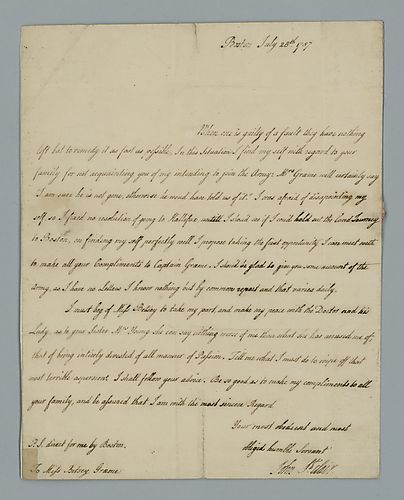 Boston July 28th 1757
When one is guilty of a fault they have nothing
left but to remedy it as fast as possible. In this Situation I find my self with regard to your
family for not acquainting you of my intending to join the Army: Mrs Graeme will certainly say
I am sure he is not gone, otherwise he woud have told us of it. I was afraid of disapointing my
self so I fixed no resolution of going to Hallifax, untill I should see if I could hold out the Land Journey
to Boston, on finding my self perfectly well I propose taking the first oportunity. I was most
to make all your Compliments to Captain Graeme. I should be glad to give you some account of the
Army, as I have no Letters I know nothing but by common report and that varies daily.
I must beg of Miss Betsey to take my part, and make my peace with the Doctor and his
Lady, as to your Sister Mrs Young she can say nothing worse of me than what she has accused me of,
that of being intirely devoided of all manner of Passion. Tell me what I must do to wipe off that
most terrible aspersion. I shall follow your advice. Be so good as to make my compliments to all
your family, and be assured that I am with the most sincere Regard
Your most obedient and most
obliged humble Servant
John
P.S. direct for me by Boston.
To Miss Betsey Graeme